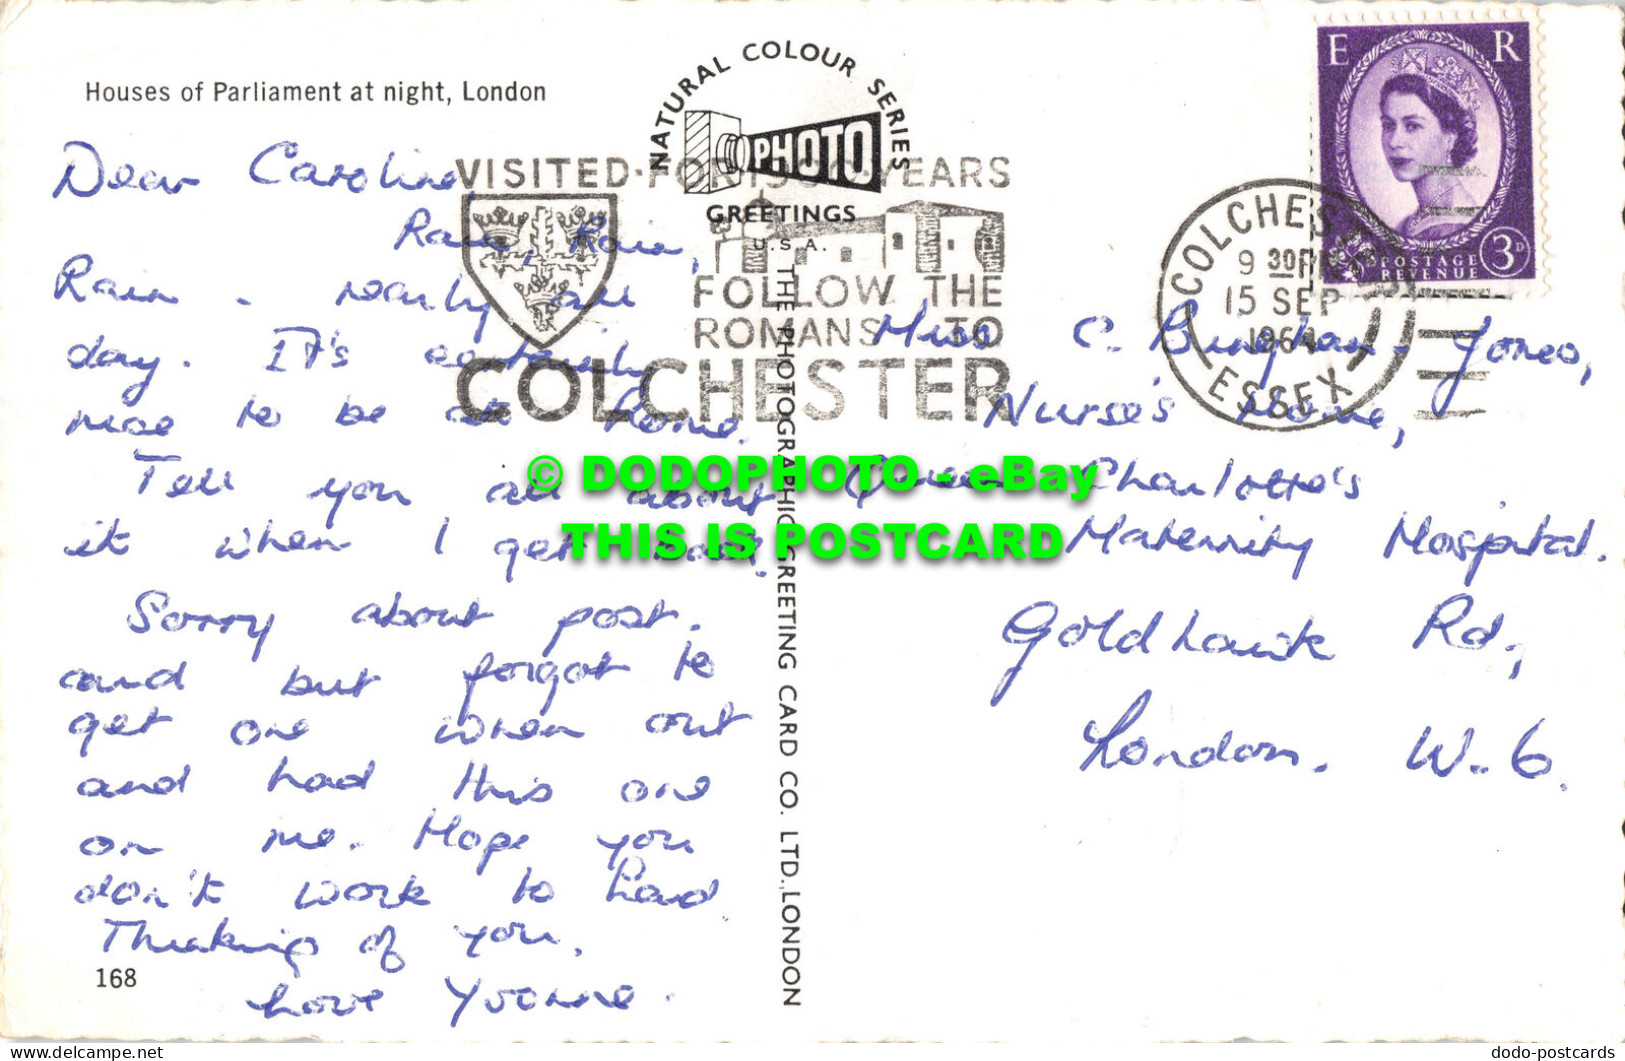 Houses of Parliament at night, London
NATURAL COLOUR SERIES
PHOTO
GREETINGS
U.S.A.
E R
3D
POSTAGE
REVENUE
VISITED FOR YEARS
FOLLOW THE
ROMANS TO
COLCHESTER
COLCHESTER
9 30 PM
15 SEP
1964
ESSEX
Dear Caroline,
Rain, Rain,
Rain - nearly all
day. It's
nice to be at home.
Tell you all about
it when I get back.
Sorry about post.
card but forgot to
get one when out
and had this one
on me. Hope you
don't work to hard
Thinking of you.
Love Yvonne.
168
THE PHOTOGRAPHIC GREETING CARD CO. LTD., LONDON
Miss C. Bingham-Jones,
Nurse's Home,
Queen Charlotte's
Maternity Hospital.
Goldhawk Rd,
London. W.6.
© DODOPHOTO - eBay
THIS IS POSTCARD
www.delcampe.net
dodo-postcards